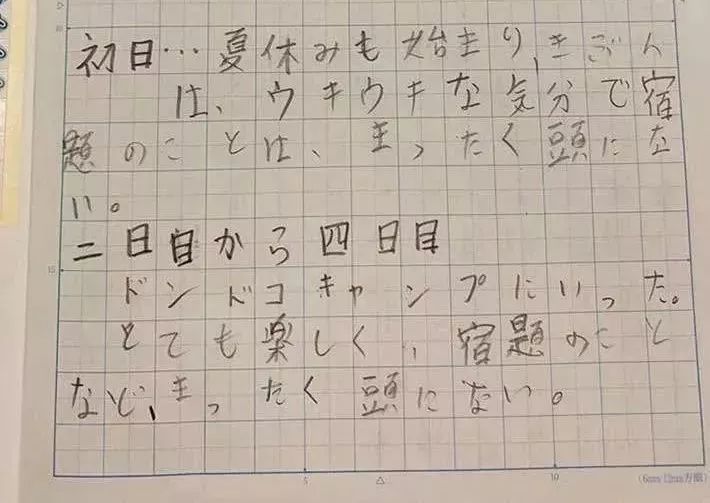 初日…夏休みも始まり、きぶん
は、ウキウキな気分で宿
題のことは、まったく頭にな
い。
二日目から四日目
ドンドコキャンプにいった。
とても楽しく、宿題のこと
など、まったく頭にない。
5
10
15
(6mm 12mm方眼)